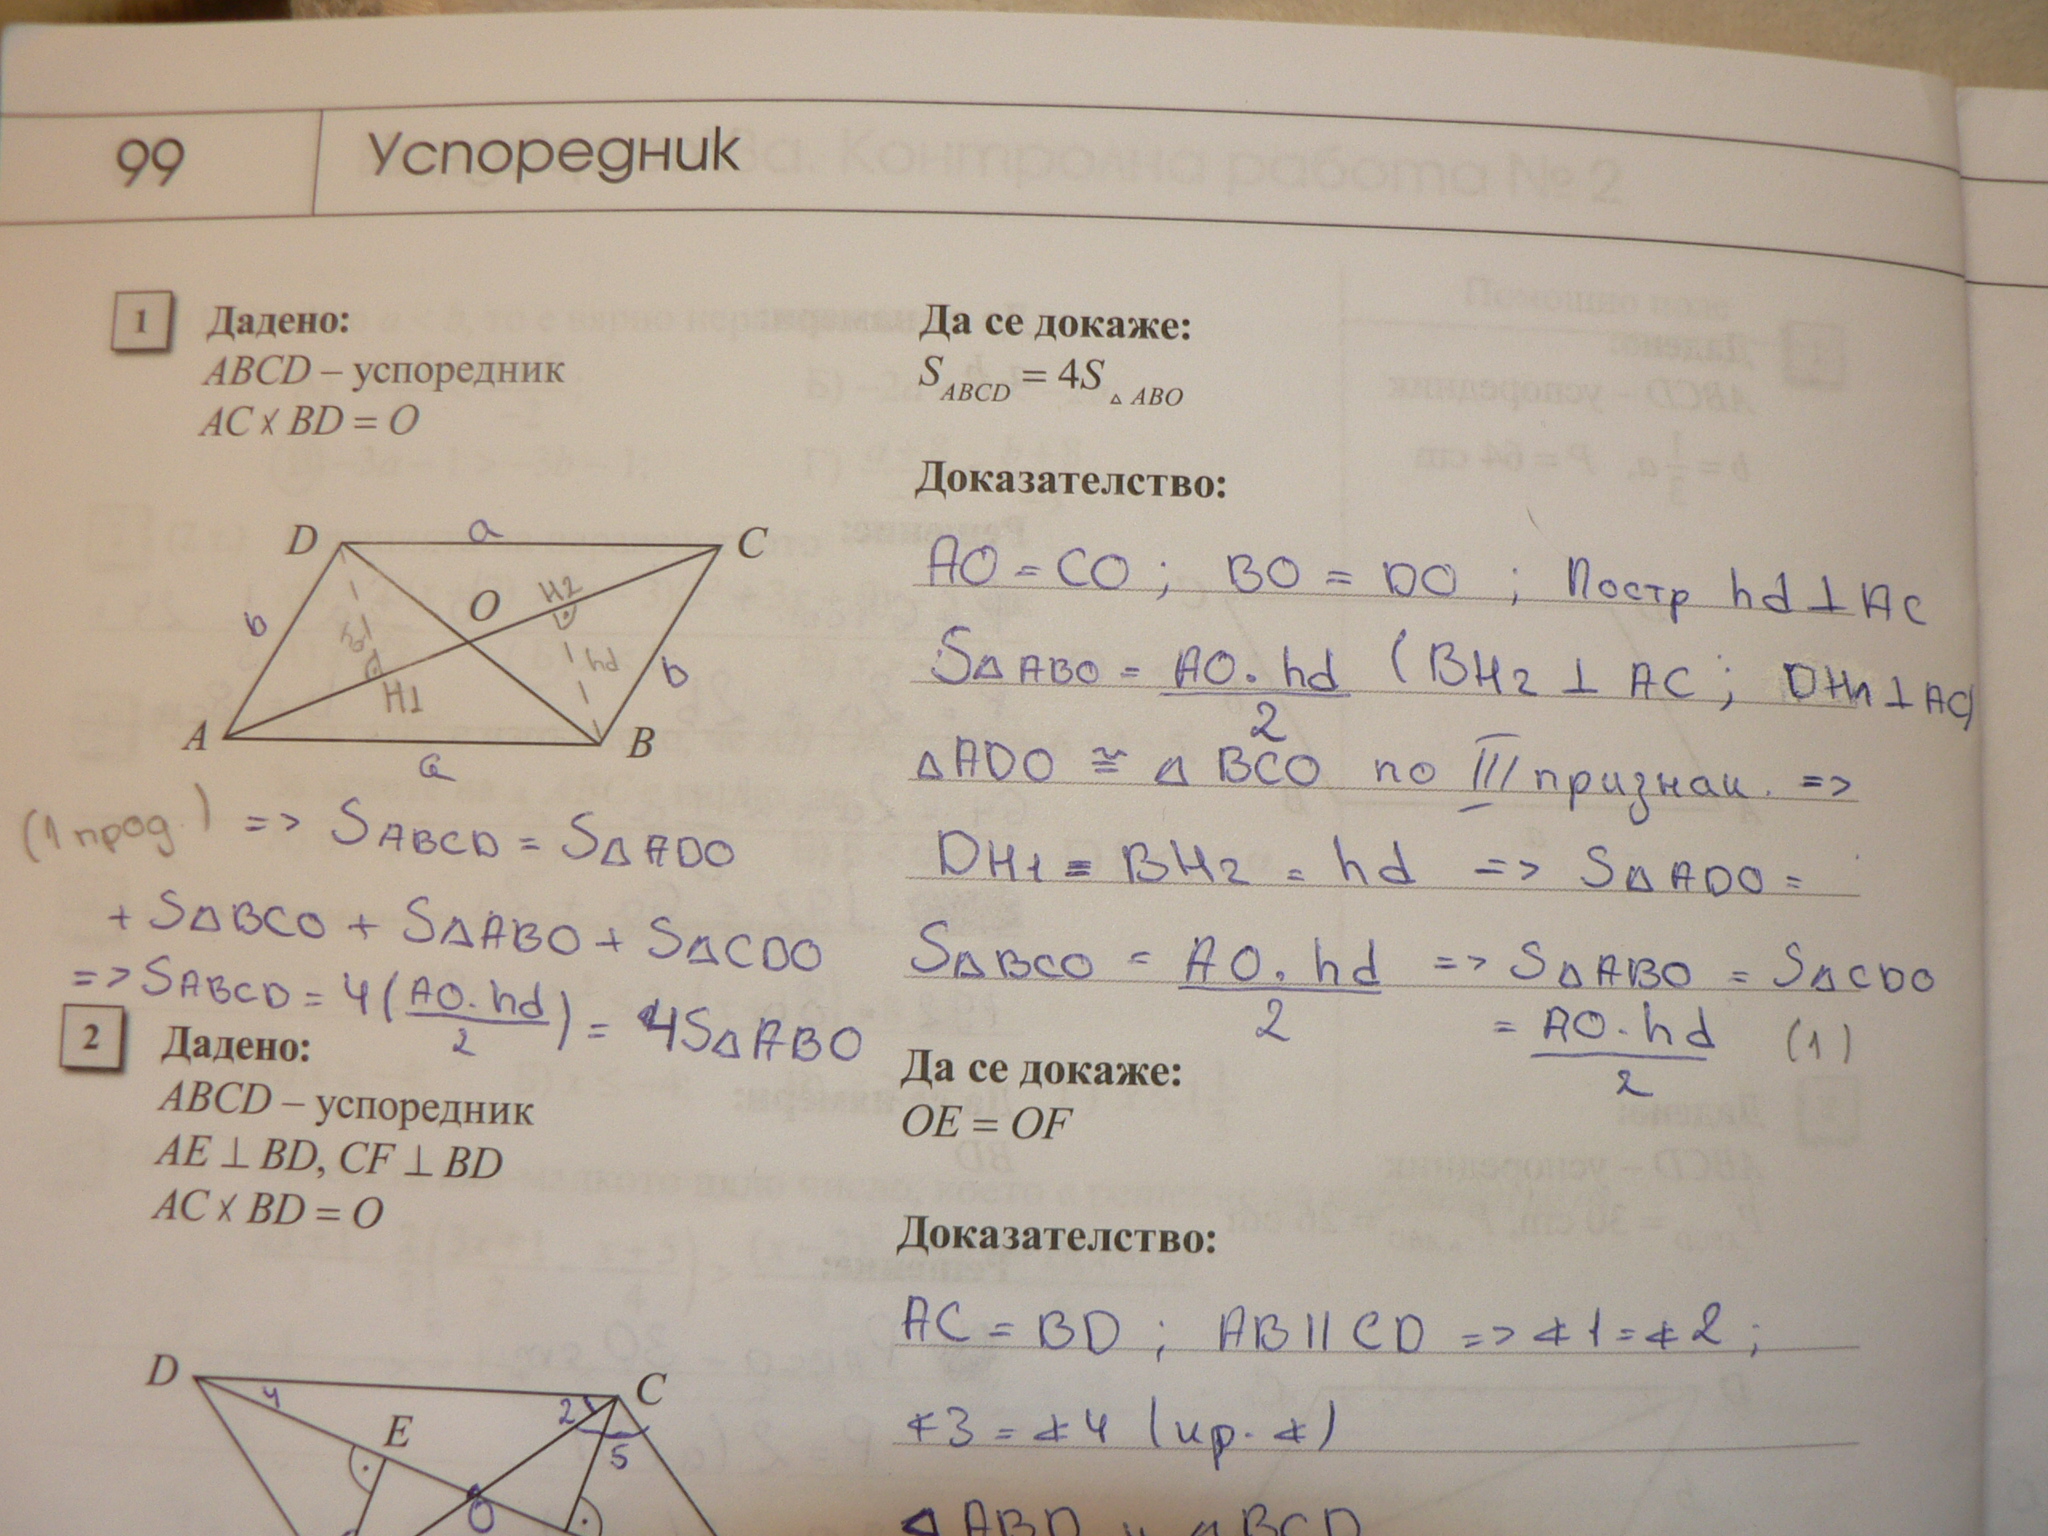 99 Успоредник
1 Дадено:
ABCD – успоредник
AC X BD = O
Да се докаже:
S ABCD = 4S △ ABO
Доказателство:
AO = CO ; BO = DO ; Постр hd ⊥ AC
S△ABO = AO . hd / 2 (BH2 ⊥ AC ; DH1 ⊥ AC)
△ADO ≅ △ BCO по III признак. =>
DH1 = BH2 = hd => S△ADO =
S△BCO = AO . hd / 2 => S△ABO = S△CDO
= AO . hd / 2 (1)
D a C
O H2
b hd hd b
H1
A a B
(1 прод.) => SABCD = S△ADO
+ S△BCO + S△ABO + S△CDO
=> SABCD = 4 (AO . hd / 2) = 4S△ABO
2 Дадено:
ABCD – успоредник
AE ⊥ BD, CF ⊥ BD
AC X BD = O
Да се докаже:
OE = OF
Доказателство:
AC = BD ; AB || CD => ∢1 = ∢2 ;
∢3 = ∢4 (кр. ∢)
△ ABD и △ BCD
D 4 2 C
E 5
O